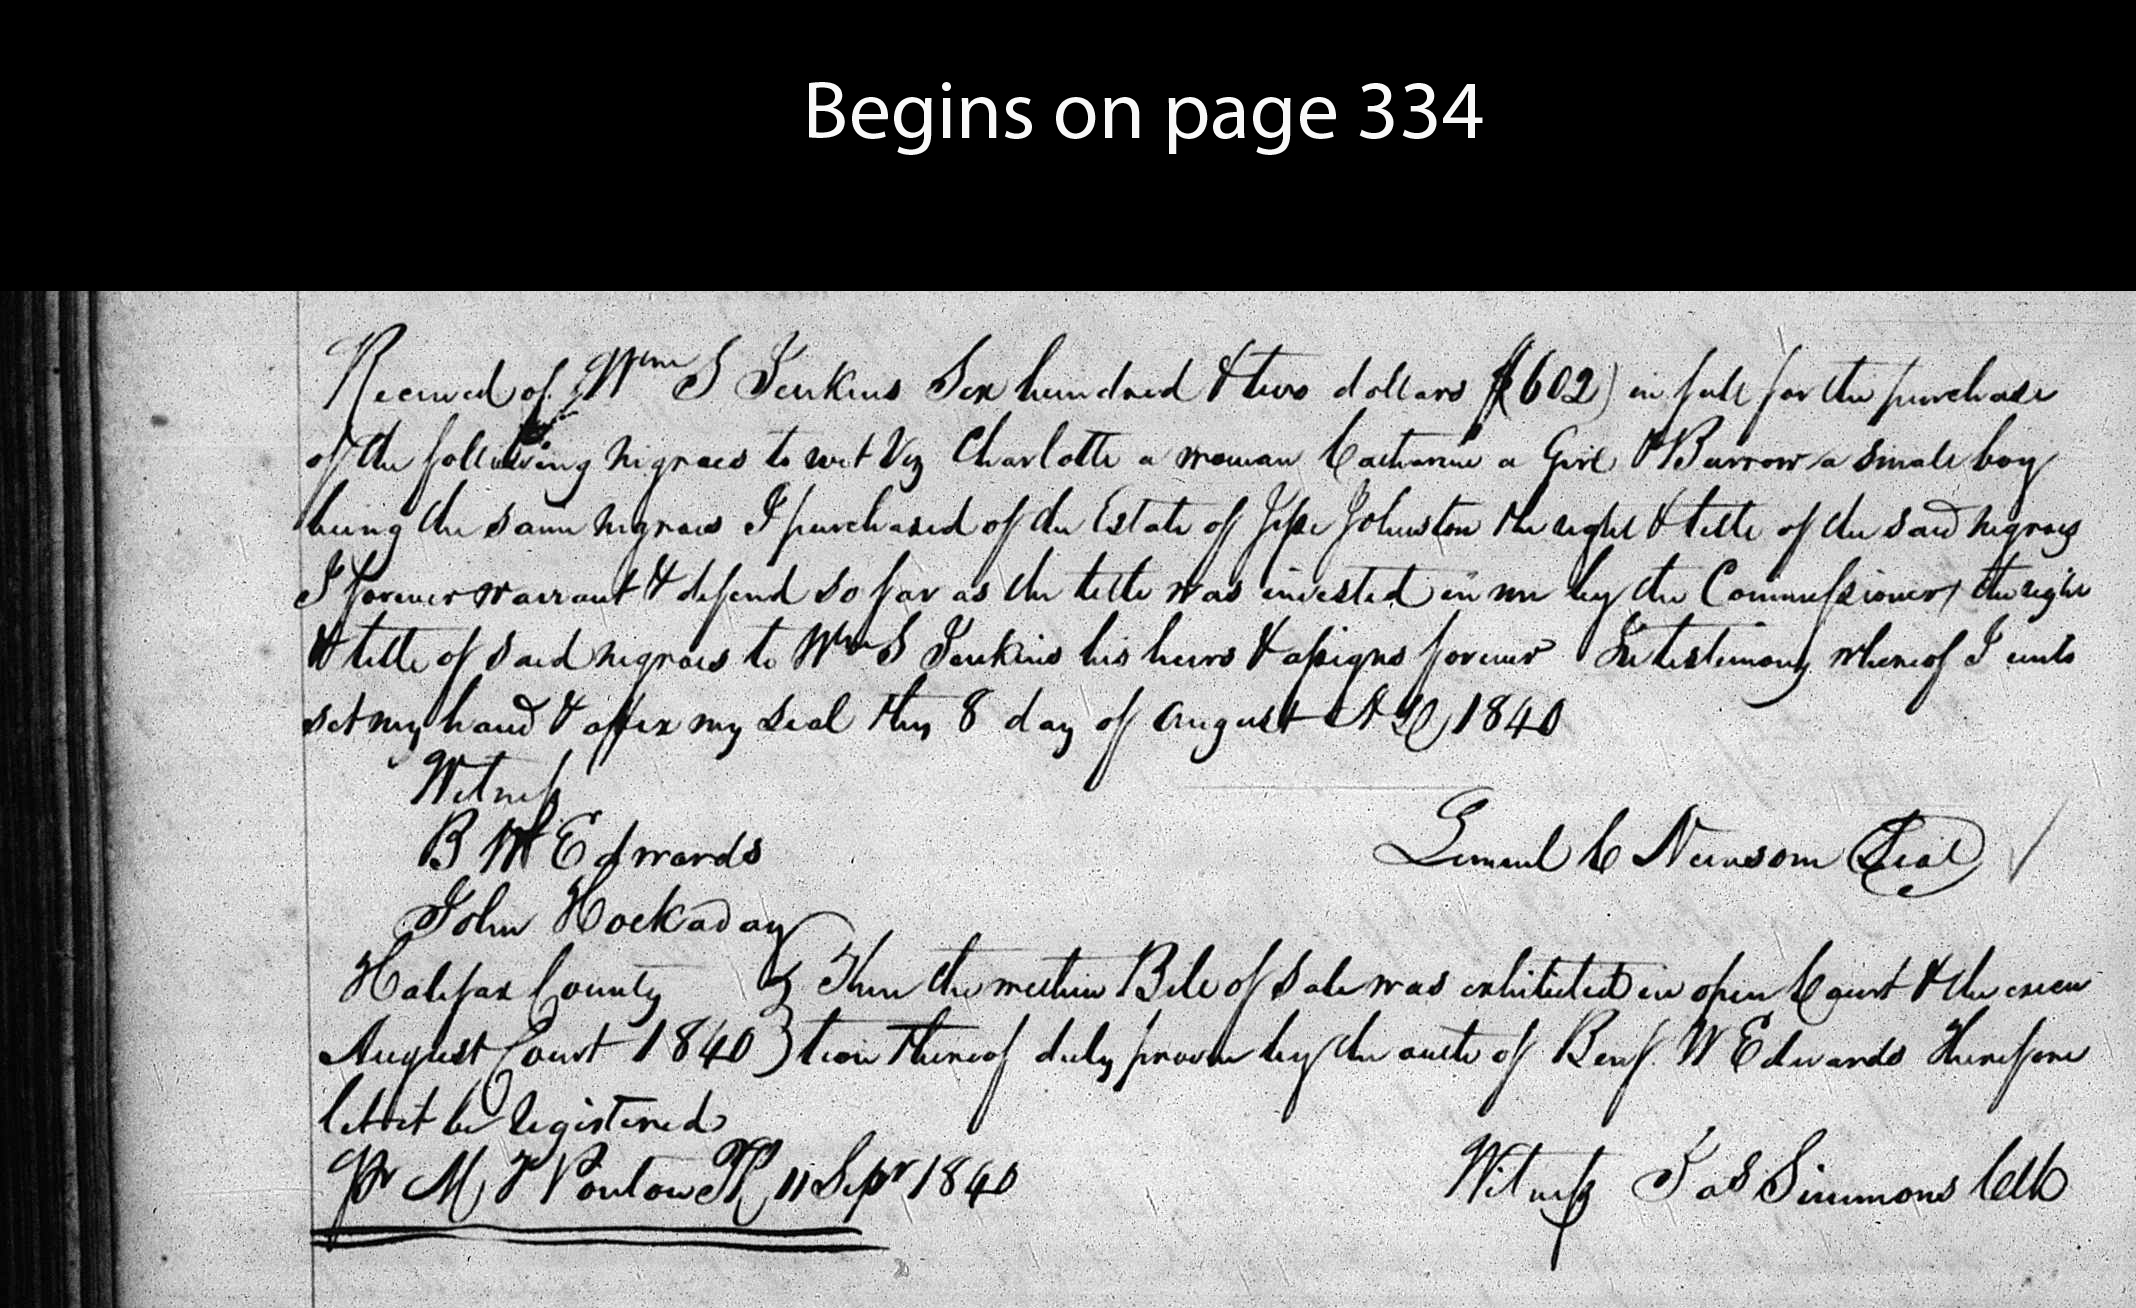 Begins on page 334
Received of Wm S Jenkins Six hundred & two dollars ($602) in full for the purchase
of the following negroes to wit Viz Charlotte a woman Catharine a Girl & Burrow a small boy
being the same negroes I purchased of the Estate of Jesse Johnston the right & title of the said negroes
I forever warrant & defend so far as the title was invested in me by the Commissioner, the right
& title of said negroes to Wm S Jenkins his heirs & assigns forever In testimony whereof I unto
set my hand & affix my seal this 8 day of August A D 1840
Witness
B W Edwards
Lemuel C Newsom Seal
John Hockaday
Halifax County } Then the within Bill of Sale was exhibited in open Court & the execu
August Court 1840 } tion thereof duly proven by the oath of Benj. W Edwards Therefore
let it be registered
Pr M T Ponton PR 11 Sepr 1840
Witness Jas Simmons Clk